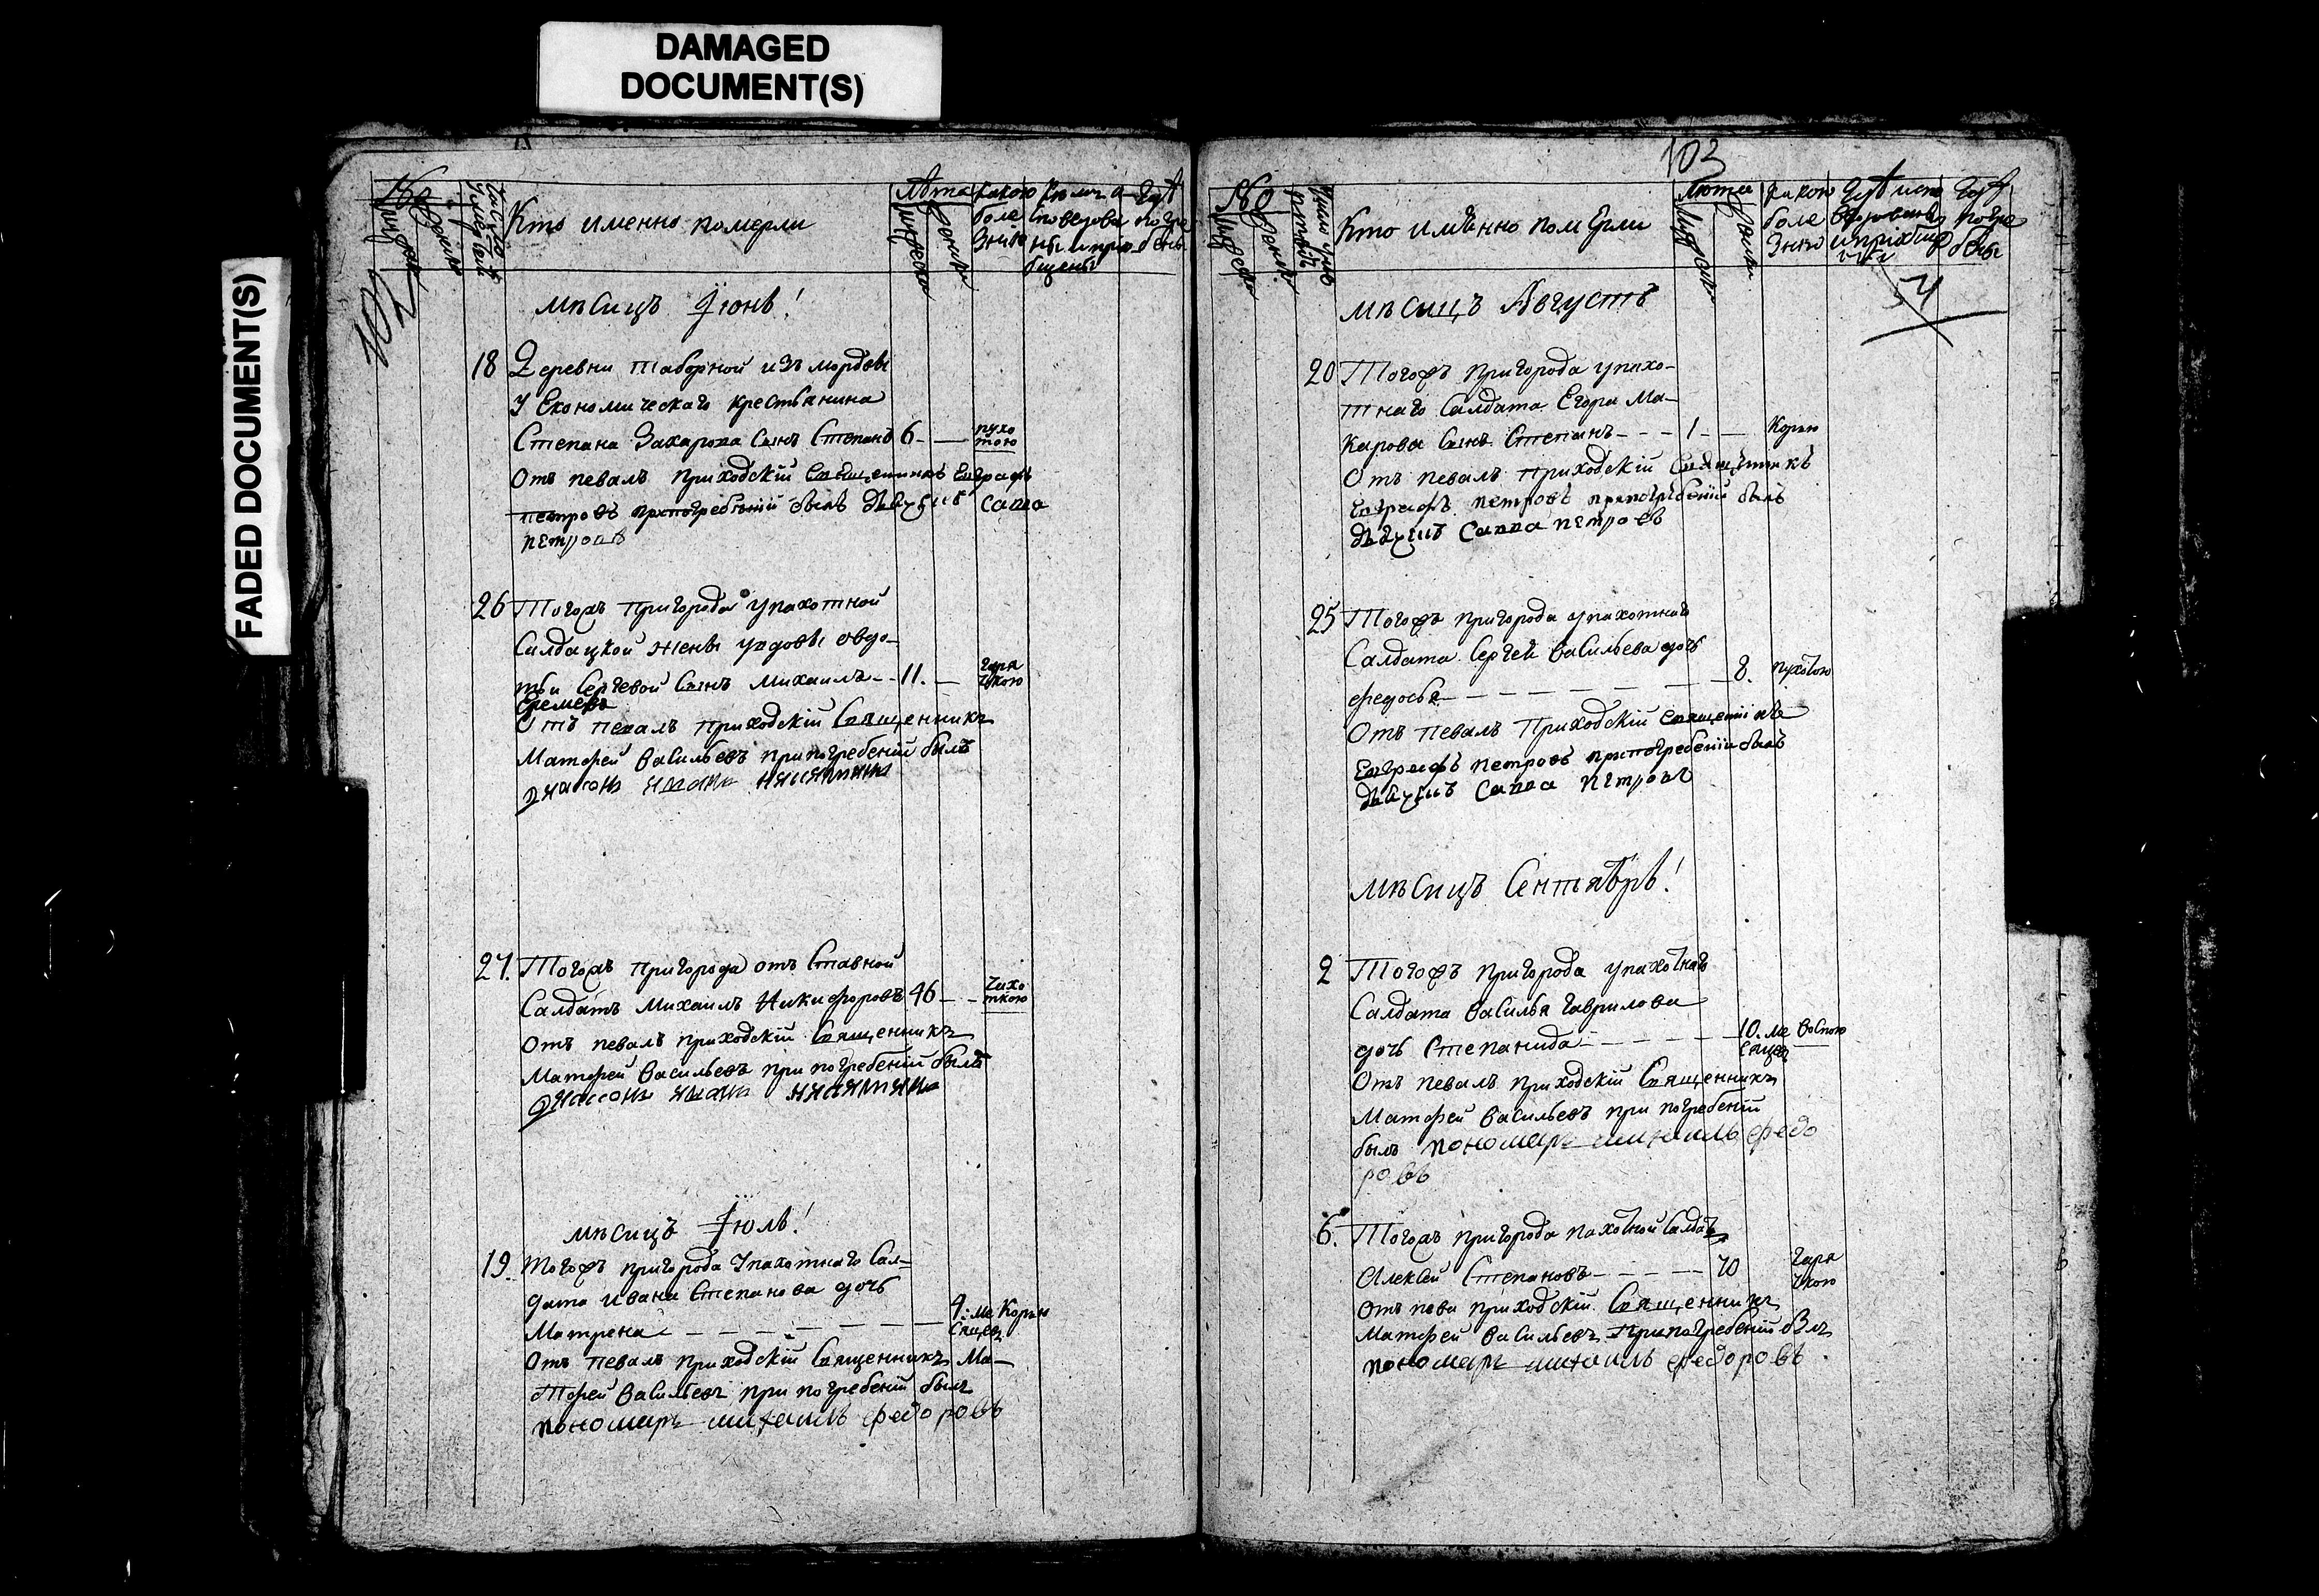 DAMAGED
DOCUMENT(S)
FADED DOCUMENT(S)
102
№
Кто именно померли
Лѣта
какою
боле
знію
мѣсицъ Iюнь!
18 Деревни таборной изъ мордвы
у Економическаго крестьянина
Степана Захарова сынъ Степанъ 6 - — пухо
тою
Отъ певалъ приходскiй Священникъ Евграфъ
петровъ припогребѣнiй былъ дьячекъ Савва
петровъ
26 Тогожъ пригорода упахотной
Салдацкой жены удовы овдо-
тьи Сергѣевой сынъ Михаилъ - - 11. — горя
чкою
Еремеевъ
Отъ певалъ приходскiй Священникъ
Матфей васильевъ припогребенiй былъ
27. Тогожъ пригорода отъ ставной
Салдатъ Михаилъ Никифоровъ 46 - - чихо
ткою
Отъ певалъ приходскiй Священникъ
Матфей васильевъ при погребенiй былъ
мѣсицъ Iюль!
19. тогожъ пригорода упахотнаго Сал=
дата Ивана Степанова дочь
Матрена — — — — — 9. ме
сяцев Корью
Отъ певалъ приходскiй Священникъ Ма-
тфей васильевъ при погребенiй былъ
пономарь михаилъ федоровъ
103
№
Кто имянно помѣрли
какою
боле
знию
погре
бены
мѣсицъ Августъ
20 Тогожъ пригорода упахо-
тнаго Салдата Егора Ма-
карова Сынъ Степанъ - - - 1 - — Корью
Отъ певалъ приходскiй Священникъ
Евграфъ петровъ припогрѣбѣнiй былъ
дьячекъ Савва петровъ
25 Тогожъ пригорода упахотнагъ
Салдата Сергѣй васильева дочь
федосья — — — — — — 8. пухотою
Отъ певалъ приходскiй священiкъ
Евграфъ петровъ припогребенiи былъ
дьячекъ Савва петровъ
мѣсицъ Сентябрь!
2 Тогожъ пригорода упахотнагъ
Салдата василья гаврилова
дочь Степанида - - - - - 10. ме воспою
сяцев
Отъ певалъ приходскiй Священникъ
Матфей васильевъ при погребенiй
былъ пономарь михаилъ федо
ровъ
6. Тогожъ пригорода пахотной салдатъ
Алексѣй Степановъ - - - - 70 горя
чкою
отъ пева приходскiй Священникъ
Матфей васильевъ припогребенiй былъ
пономарь михаилъ федоровъ